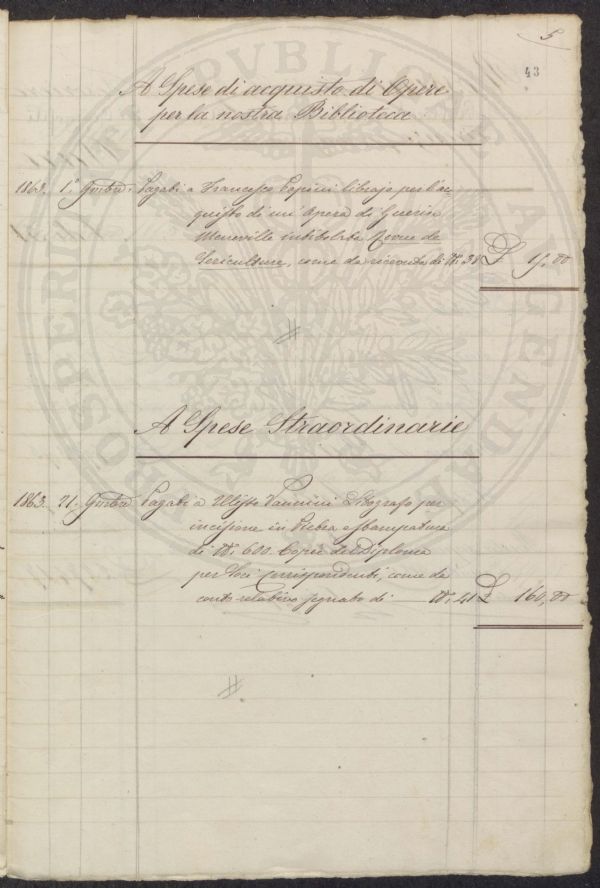 5
43
A Spese di acquisto di Opere
per la nostra Biblioteca
1863. 1.° Gmbre. Pagati a Francesco Pepini librajo per l'ac-
quisto di un' Opera di Guerin
Meneville intitolata Revue de
Sericulture, come da ricevuta di N. 38 £ 15,00
#
A Spese Straordinarie
1863. 21. Gmbre Pagati a Ulisse Vannini Litografo per
incisione in Pietra e stampatura
di N. 600. Copie del Diploma
per Soci Corrispondenti, come da
conto relativo segnato di N. 41 £ 160,00
#
PVBLICAE
AVGENDAE
PROSPERITATI